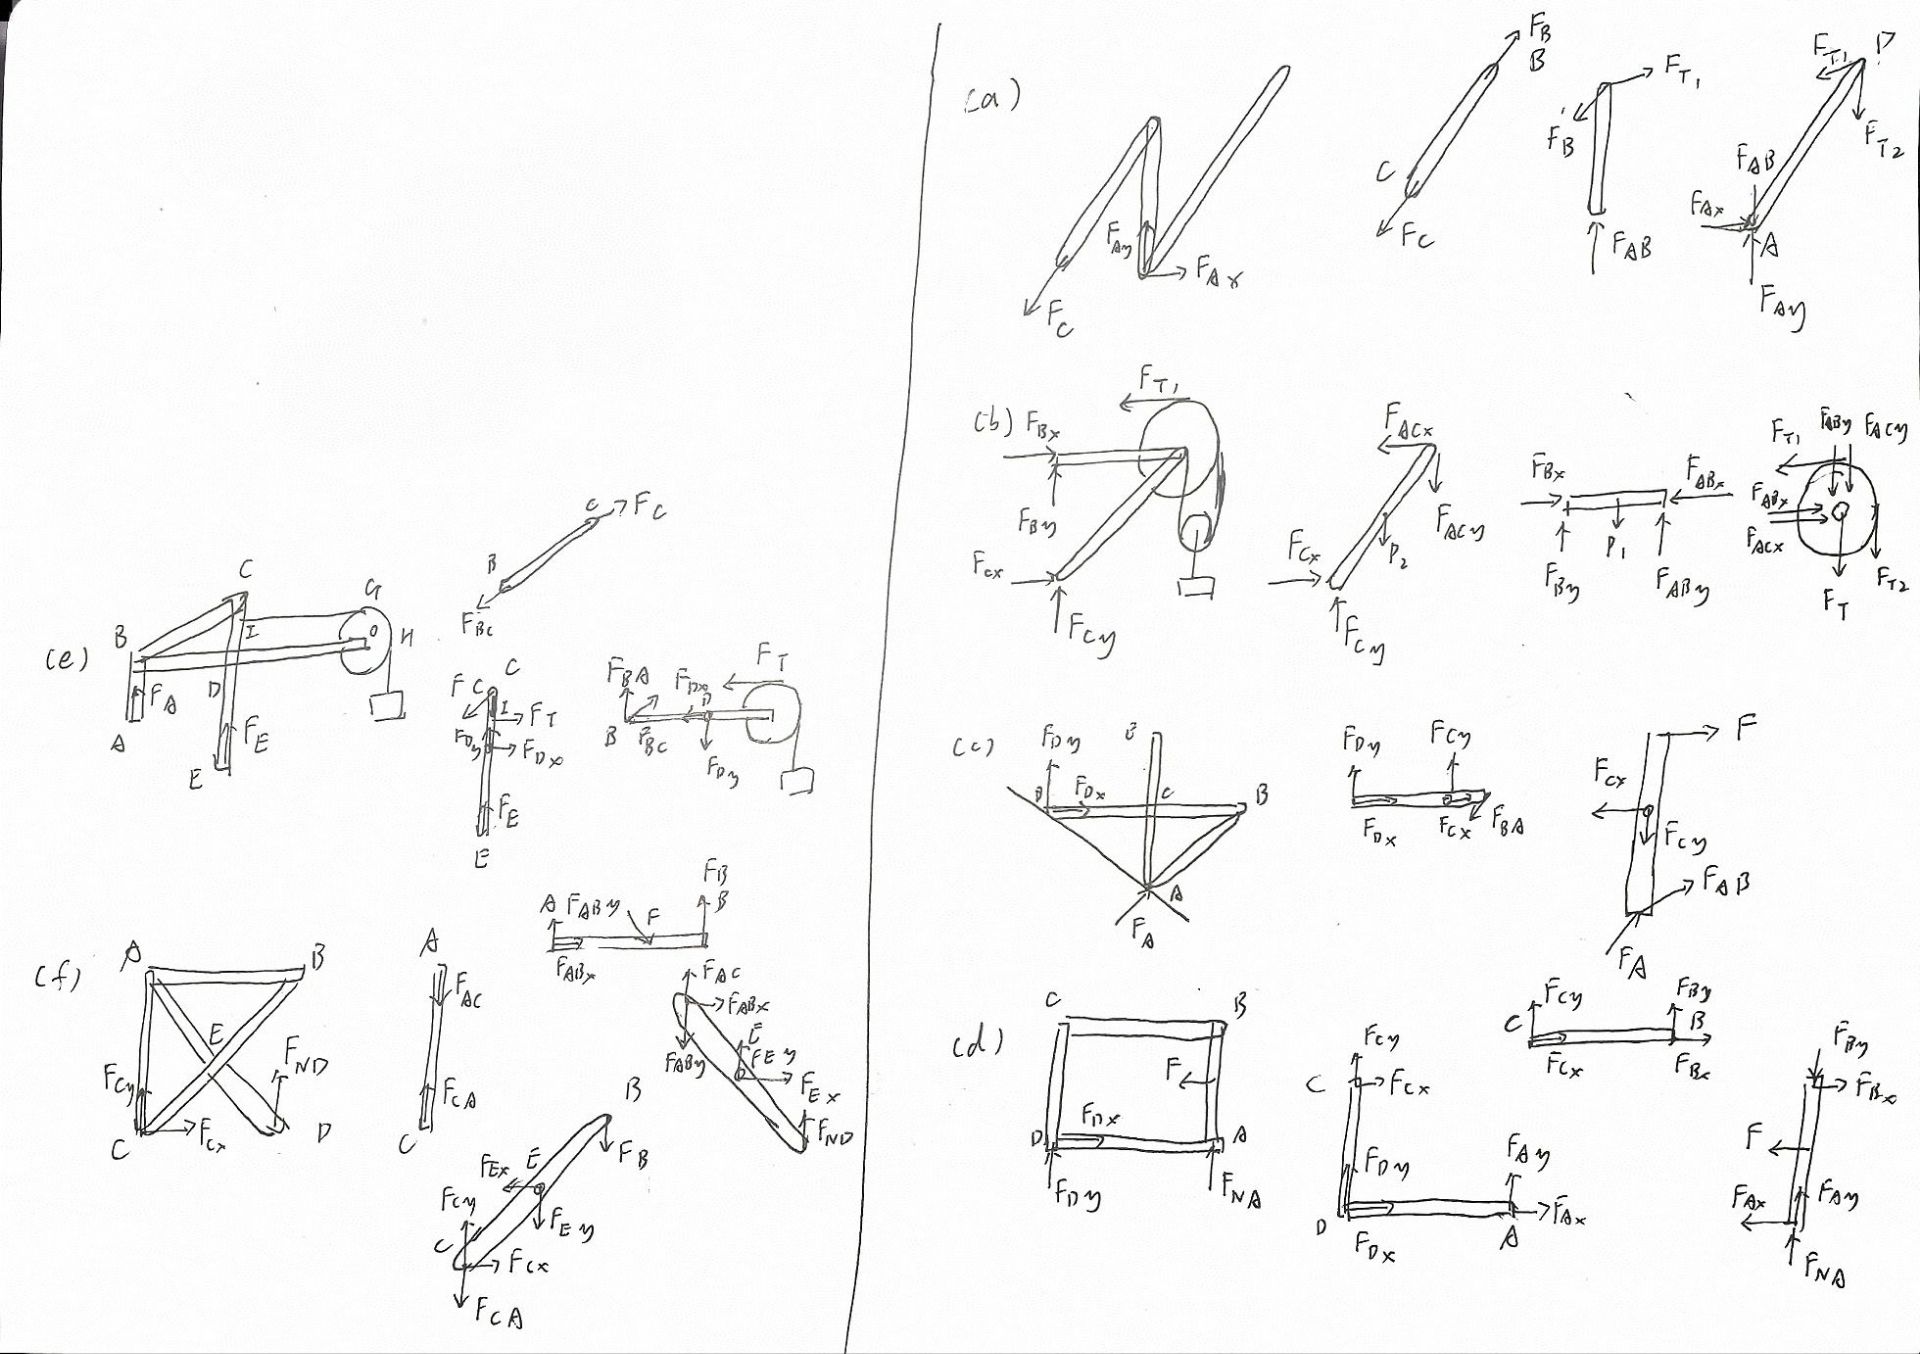 (e)
B
C
G
I
O
H
D
F_A
A
F_E
E
C
F_C
B
F_BC
C
F_C
I
F_T
F_Dy
F_Dx
F_E
E
F_BA
F_Dx
D
F_T
B
F_BC
F_Dy
(f)
A
B
E
F_ND
F_Cy
F_Cx
C
D
A
F_AC
F_CA
C
F_B
A
F_ABy
F
B
F_ABx
F_AC
F_ABx
F_ABy
E
F_Ey
F_Ex
F_ND
B
F_B
F_Ex
E
F_Cy
F_Ey
C
F_Cx
F_CA
(a)
F_Ay
F_Ax
F_C
F_B
B
C
F_C
F_T1
F'_B
F_AB
F_T1
F_T2
F_AB
F_Ax
A
F_Ay
(b)
F_T1
F_Bx
F_By
F_Cx
F_Cy
F_ACx
F_ACy
P_2
F_Cx
F_Cy
F_Bx
F_ABx
P_1
F_By
F_ABy
F_T1
F_ABy
F_ACy
F_ABx
F_ACx
F_T2
F_T
(c)
F_Dy
F_Dx
C
B
A
F_A
F_Dy
F_Cy
F_Dx
F_Cx
F_BA
F
F_Cx
F_Cy
F_AB
F_A
(d)
C
B
F
F_Dx
D
A
F_Dy
F_NA
F_Cy
C
F_Cx
F_Dy
F_Ay
D
F_Dx
A
F_Ax
F_Cy
F_By
C
B
F_Cx
F_Bx
F_By
F_Bx
F
F_Ax
F_Ay
F_NA